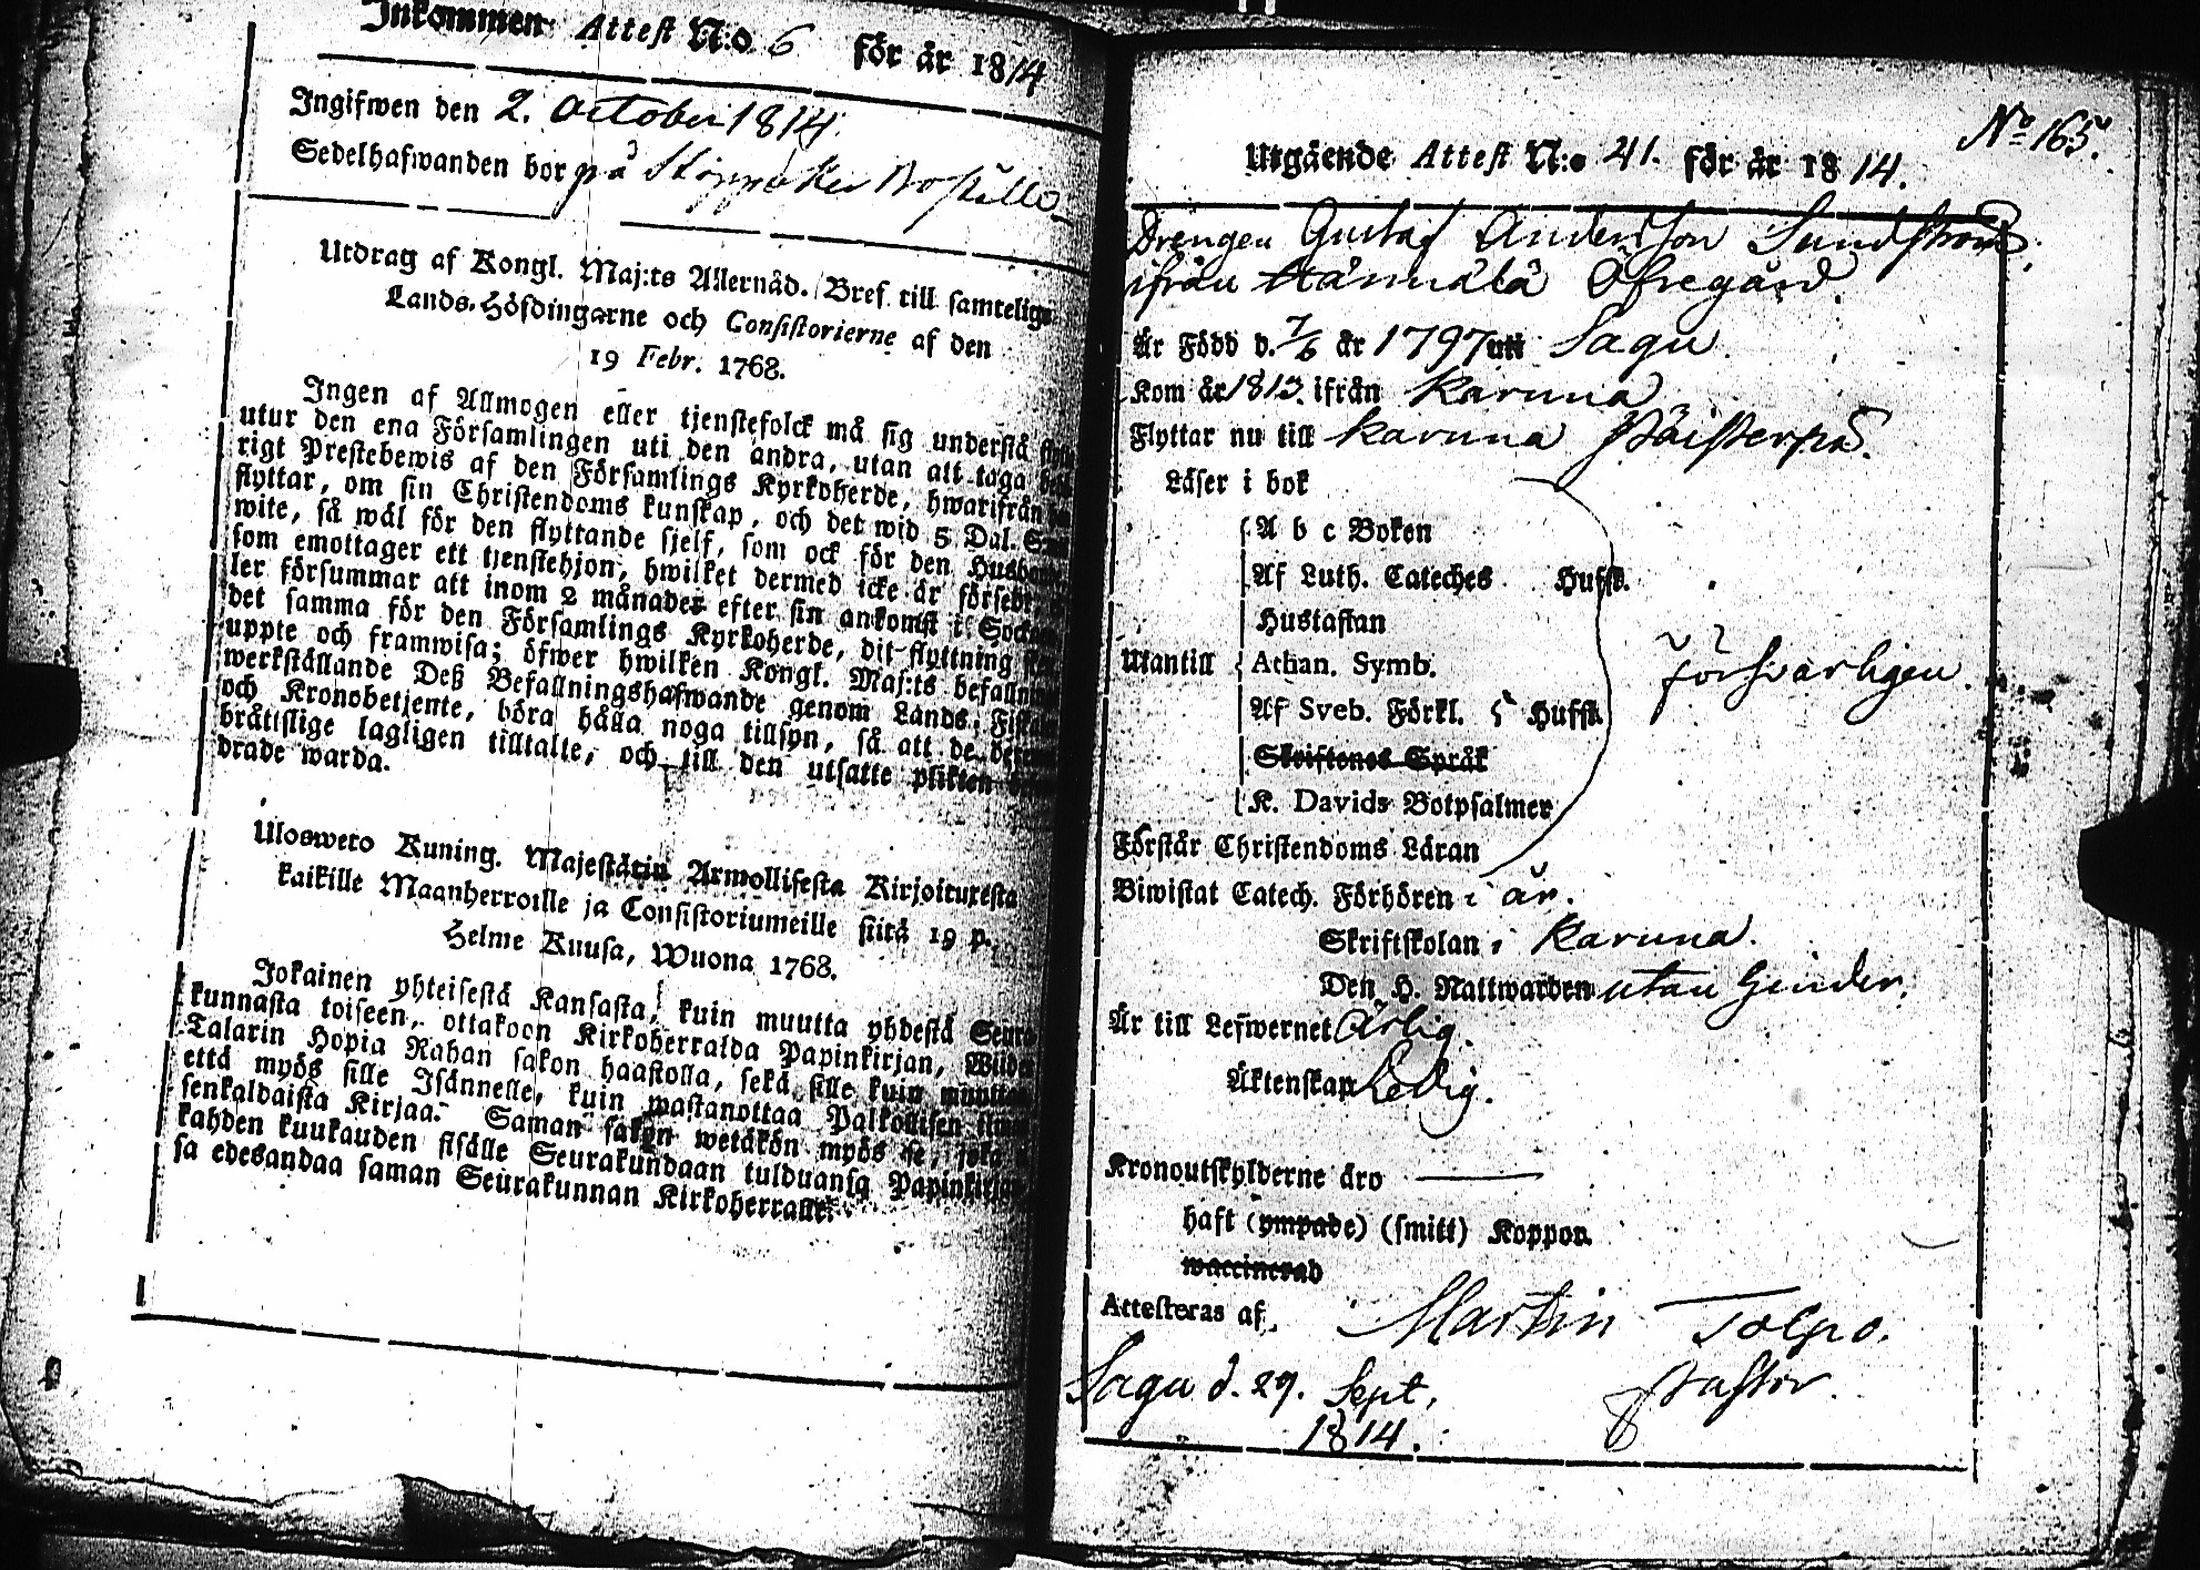 Inkommen Attest N:o 6 för år 1814
Ingifwen den 2. October 1814.
Sedelhafwanden bor på
Utdrag af Kongl. Maj:ts Allernåd. Bref till samtelige
Lands-Höfdingarne och Consistorierne af den
19 Febr. 1768.
Ingen af Allmogen eller tjenstefolck må sig understå
utur den ena Församlingen uti den andra, utan att taga
rigt Prestebewis af den Församlings Kyrkoherde, hwarifrån
flyttar, om sin Christendoms kunskap, och det wid 5 Dal.
wite, så wäl för den flyttande sjelf, som ock för den
som emottager ett tjenstehjon, hwilket dermed icke är försedt,
ler försummar att inom 2 månader efter sin ankomst i
det samma för den Församlings Kyrkoherde, dit flyttning
uppte och framwisa; öfwer hwilken Kongl. Maj:ts
werkställande Deß Befallningshafwande genom Lands-
och Kronobetjente, böra hålla noga tillsyn, så att de
bråttslige lagligen tilltalte, och till den utsatte plikten
drade warda.
Ulosweto Kuning. Majestätin Armollisesta Kirjoituxesta
kaikille Maanherroille ja Consistoriumeille siitä 19 p.
Helme Kuusa, Wuona 1768.
Jokainen yhteisestä Kansasta, kuin muutta yhdestä
kunnasta toiseen, ottakoon Kirkoherralda Papinkirjan,
Talarin Hopia Rahan sakon haastolla, sekä sille kuin
että myös sille Isännelle, kuin wastanottaa Palkollisen
senkaldaista Kirjaa. Saman sakon wetäkön myös se, joka
kahden kuukauden sisälle Seurakundaan tulduansa
sa edesandaa saman Seurakunnan Kirkoherralle.
No 165.
Utgående Attest N:o 41. för år 1814.
Drengen Gustaf Andersson Sundström
ifrån Öfregård.
Är Född d. 7/6 år 1797 uti Sagu.
Kom år 1813. ifrån Karuna
Flyttar nu till Karuna
Läser i bok
A b c Boken
Af Luth. Cateches Hufst.
Hustaflan
Utantill Athan. Symb. försvarligen.
Af Sveb. Förkl. 5 Hufst.
Skriftenes Språk
K. Davids Botpsalmer
Förstår Christendoms Läran
Biwistat Catech. Förhören i år.
Skriftskolan i Karuna.
Den H. Nattwarden utan hinder.
Är till Lefwernet Ärlig.
Äktenskap Ledig.
Kronoutskylderne äro
haft (ympade) (smitt) Koppor
waccinerad
Attesteras af Martin Tolpo.
Sagu d. 29. Sept. Pastor.
1814.